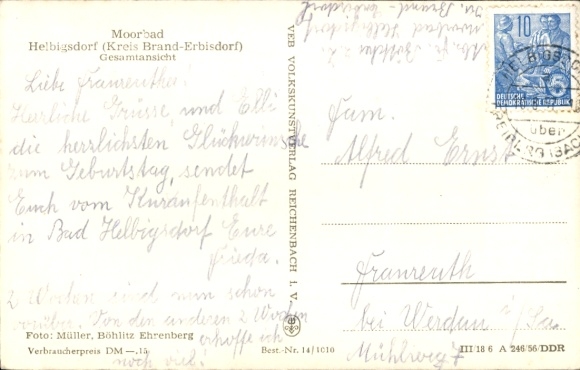 Moorbad
Helbigsdorf (Kreis Brand-Erbisdorf)
Gesamtansicht
Liebe Fraureuther!
Herzliche Grüsse, und Elli
die herzlichsten Glückwünsche
zum Geburtstag, sendet
Euch vom Kuraufenthalt
in Bad Helbigsdorf Eure
Frieda.
2 Wochen sind nun schon
vorüber. Von den anderen 2 Wochen
erhoffe ich
noch viel!
Foto: Müller, Böhlitz Ehrenberg
Verbraucherpreis DM –,15
Best.-Nr. 14/1010
VEB VOLKSKUNSTVERLAG REICHENBACH I. V.
Moorbad Helbigsdorf
10
DEUTSCHE
DEMOKRATISCHE REPUBLIK
HELBIGSDORF
über
FREIBERG (SACHS)
Fam.
Alfred Ernst
Fraureuth
bei Werdau i/Sa.
Mühlweg 7
III/18 6 A 246/56/DDR